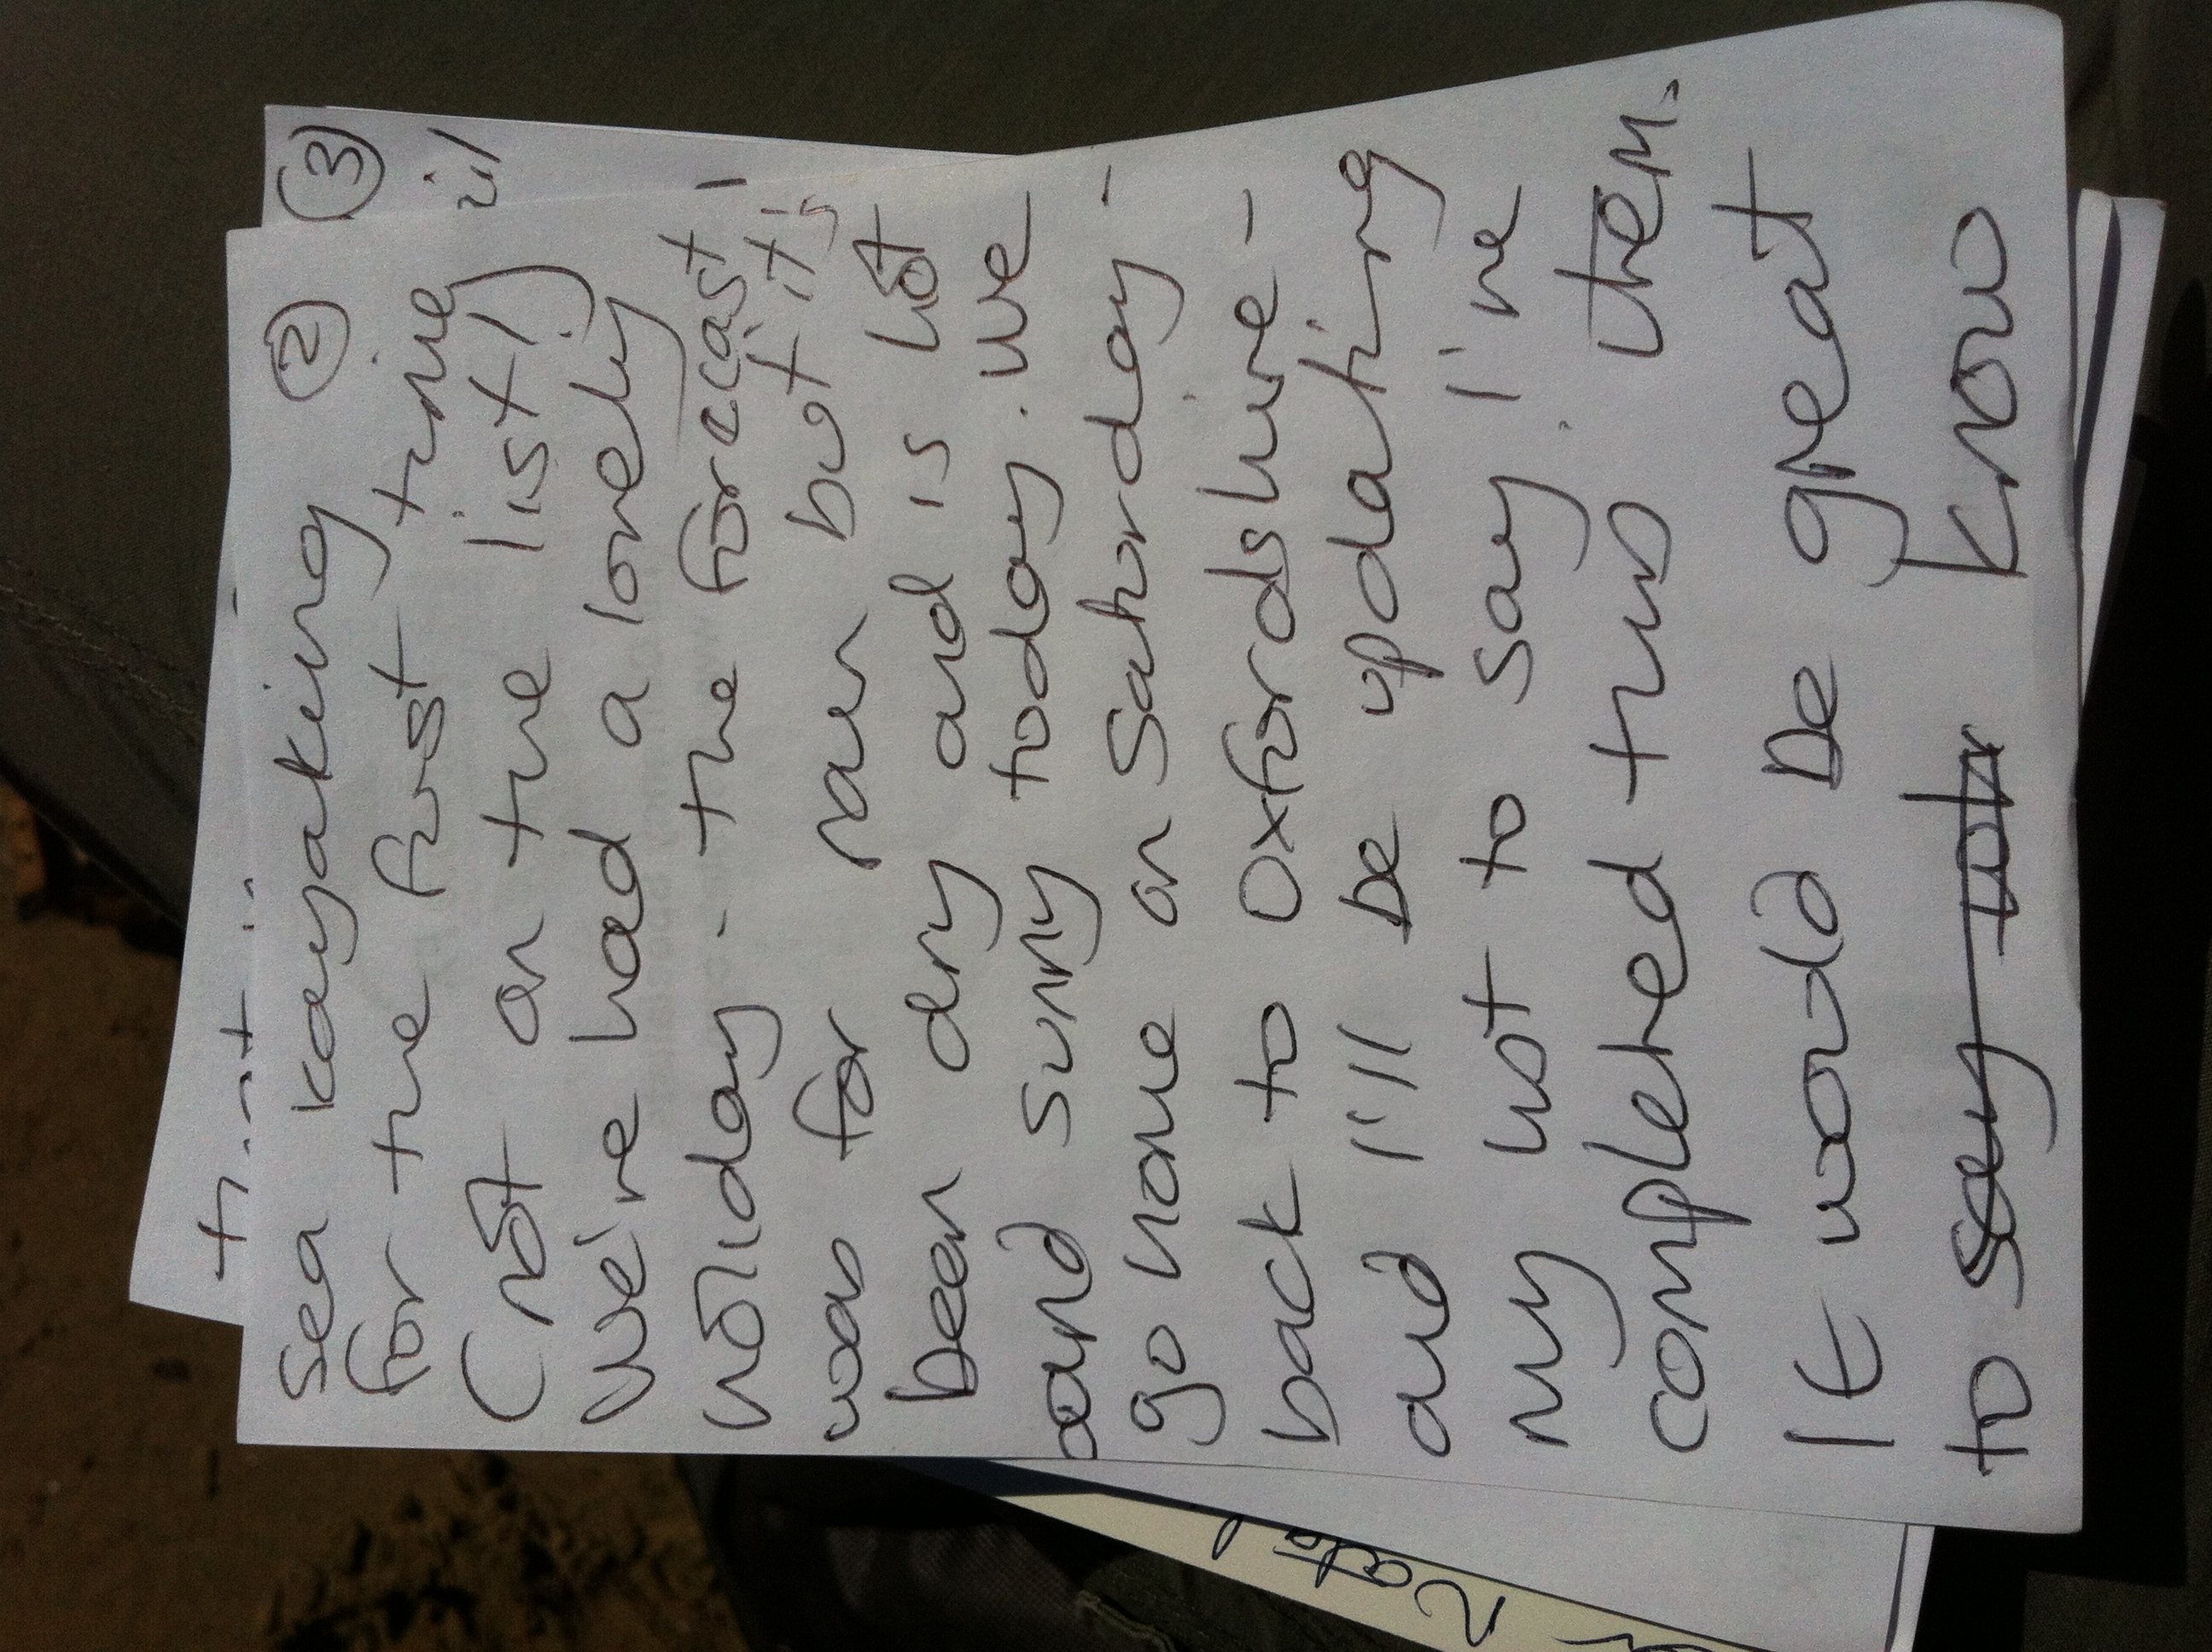 ②
sea kayaking
for the first time
(not on the list!)
We've had a lovely
holiday - the forecast
was for rain but it's
been dry and is hot
and sunny today. We
go home on Saturday -
back to Oxfordshire -
and I'll be updating
my list to say I've
completed this item.
It would be great
to say to know
③